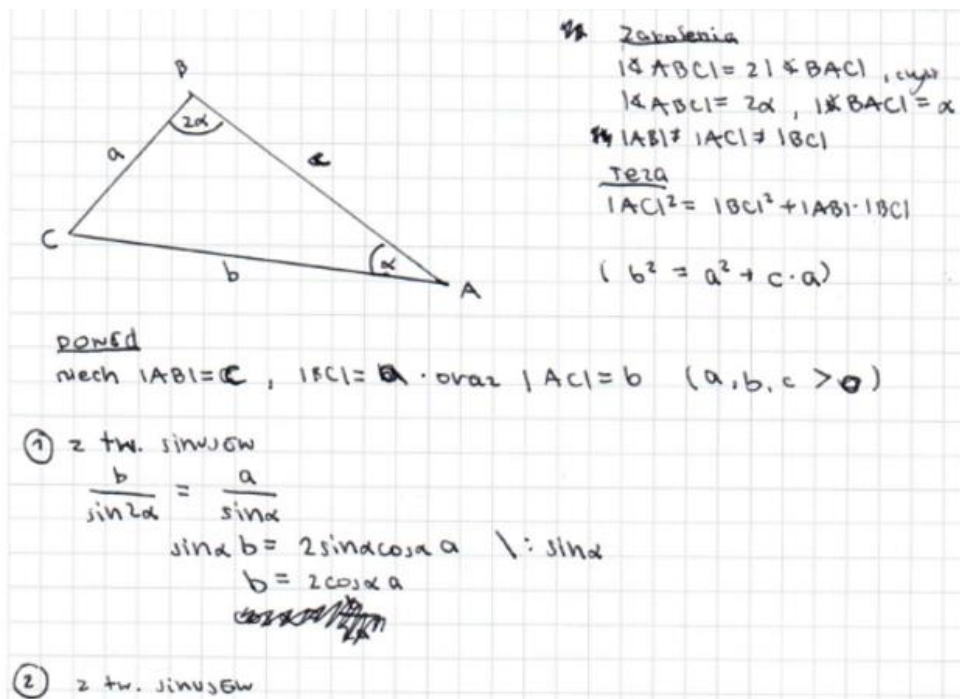 Założenia
|∢ABC| = 2|∢BAC|, czyli
|∢ABC| = 2α, |∢BAC| = α
|AB| ≠ |AC| ≠ |BC|
Teza
|AC|² = |BC|² + |AB|·|BC|
(b² = a² + c·a)
B
2α
a
c
C
b
α
A
DOWÓD
Niech |AB| = c, |BC| = a oraz |AC| = b (a, b, c > 0)
① z tw. sinusów
b/sin2α = a/sinα
sinα b = 2sinαcosα a \ : sinα
b = 2cosα a
② z tw. sinusów